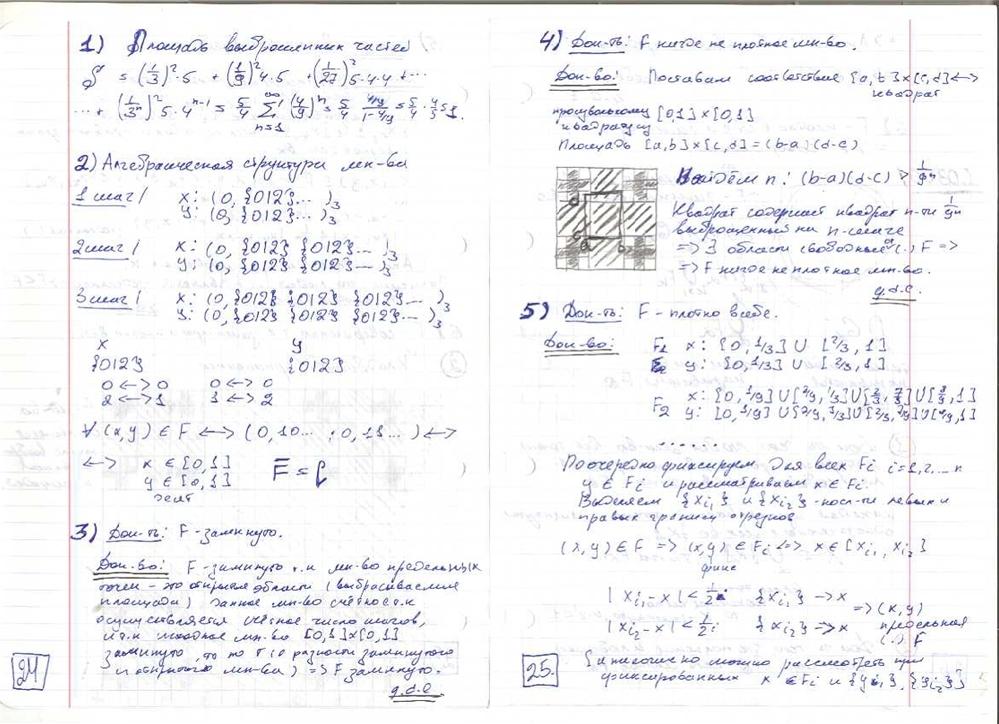 1) Площадь выброшенных частей
S = (1/3)²·5 + (1/9)²4·5 + (1/27)²5·4·4 + ...
... + (1/3ⁿ)² 5·4ⁿ⁻¹ = 5/4 ∑ₙ₌₁^∞ (4/9)ⁿ = 5/4 · (4/9)/(1-4/9) = 5/4 · 4/5 = 1.
2) Алгебраическая структура мн-ва
1 шаг / x: (0, {012} ... )₃
y: (0, {012} ... )₃
2 шаг / x: (0, {012} {012} ... )₃
y: (0, {012} {012} ... )₃
3 шаг / x: (0, {012} {012} {012} ... )₃
y: (0, {012} {012} {012} ... )₃
x y
{012} {012}
0 <-> 0 0 <-> 0
2 <-> 1 1 <-> 2
∀ (x,y) ∈ F <-> (0,10... ; 0,11...) <->
<-> x ∈ [0,1]
y ∈ [0,1]
F̿ =
3) Док-ть: F - замкнуто.
Док-во: F - замкнуто т.к мн-во предельных
точек - это открытая области (выбрасываемые
площади) данное мн-во счётное т.к
осуществляется счётное число шагов,
и т.к исходное мн-во [0,1]x[0,1]
замкнуто, то по т (о разности замкнутого
и открытого мн-ва) => F замкнуто.
q.d.e.
24
4) Док-ть: F нигде не плотное мн-во.
Док-во: Поставим соответствие [a,b]x[c,d] <->
квадрат
произвольному [0,1]x[0,1]
квадрату
Площадь [a,b]x[c,d] = (b-a)(d-c)
Найдём n: (b-a)(d-c) ≥ 1/9ⁿ
Квадрат содержит квадрат n-ти 1/9ⁿ
выброшенный на n-шаге
=> ∃ области свободные от (.) F =>
=> F нигде не плотное мн-во.
q.d.e.
d
c
a b
5) Док-ть: F - плотно в себе.
Док-во: F₁ x: [0,1/3] U [2/3,1]
y: [0,1/3] U [2/3,1]
F₂ x: [0,1/9]U[2/9,1/3]U[2/3,7/9]U[8/9,1]
y: [0,1/9]U[2/9,1/3]U[2/3,7/9]U[8/9,1]
......
Поочередно фиксируем для всех Fi i=1,2,...n
y ∈ Fi и рассматриваем x ∈ Fi.
Выделяем {xi₁} и {xi₂} - посл-ти левых и
правых границ отрезков
(x,y) ∈ F => (x,y) ∈ Fi <=> x ∈ [xi₁, xi₂]
фикс
|xi₁ - x| < 1/2i {xi₁} -> x
=> (x,y)
|xi₂ - x| < 1/2i {xi₂} -> x предельная
(.) F
Аналогично можно рассмотреть при
фиксированных x ∈ Fi и {yi₁}, {yi₂}
25.